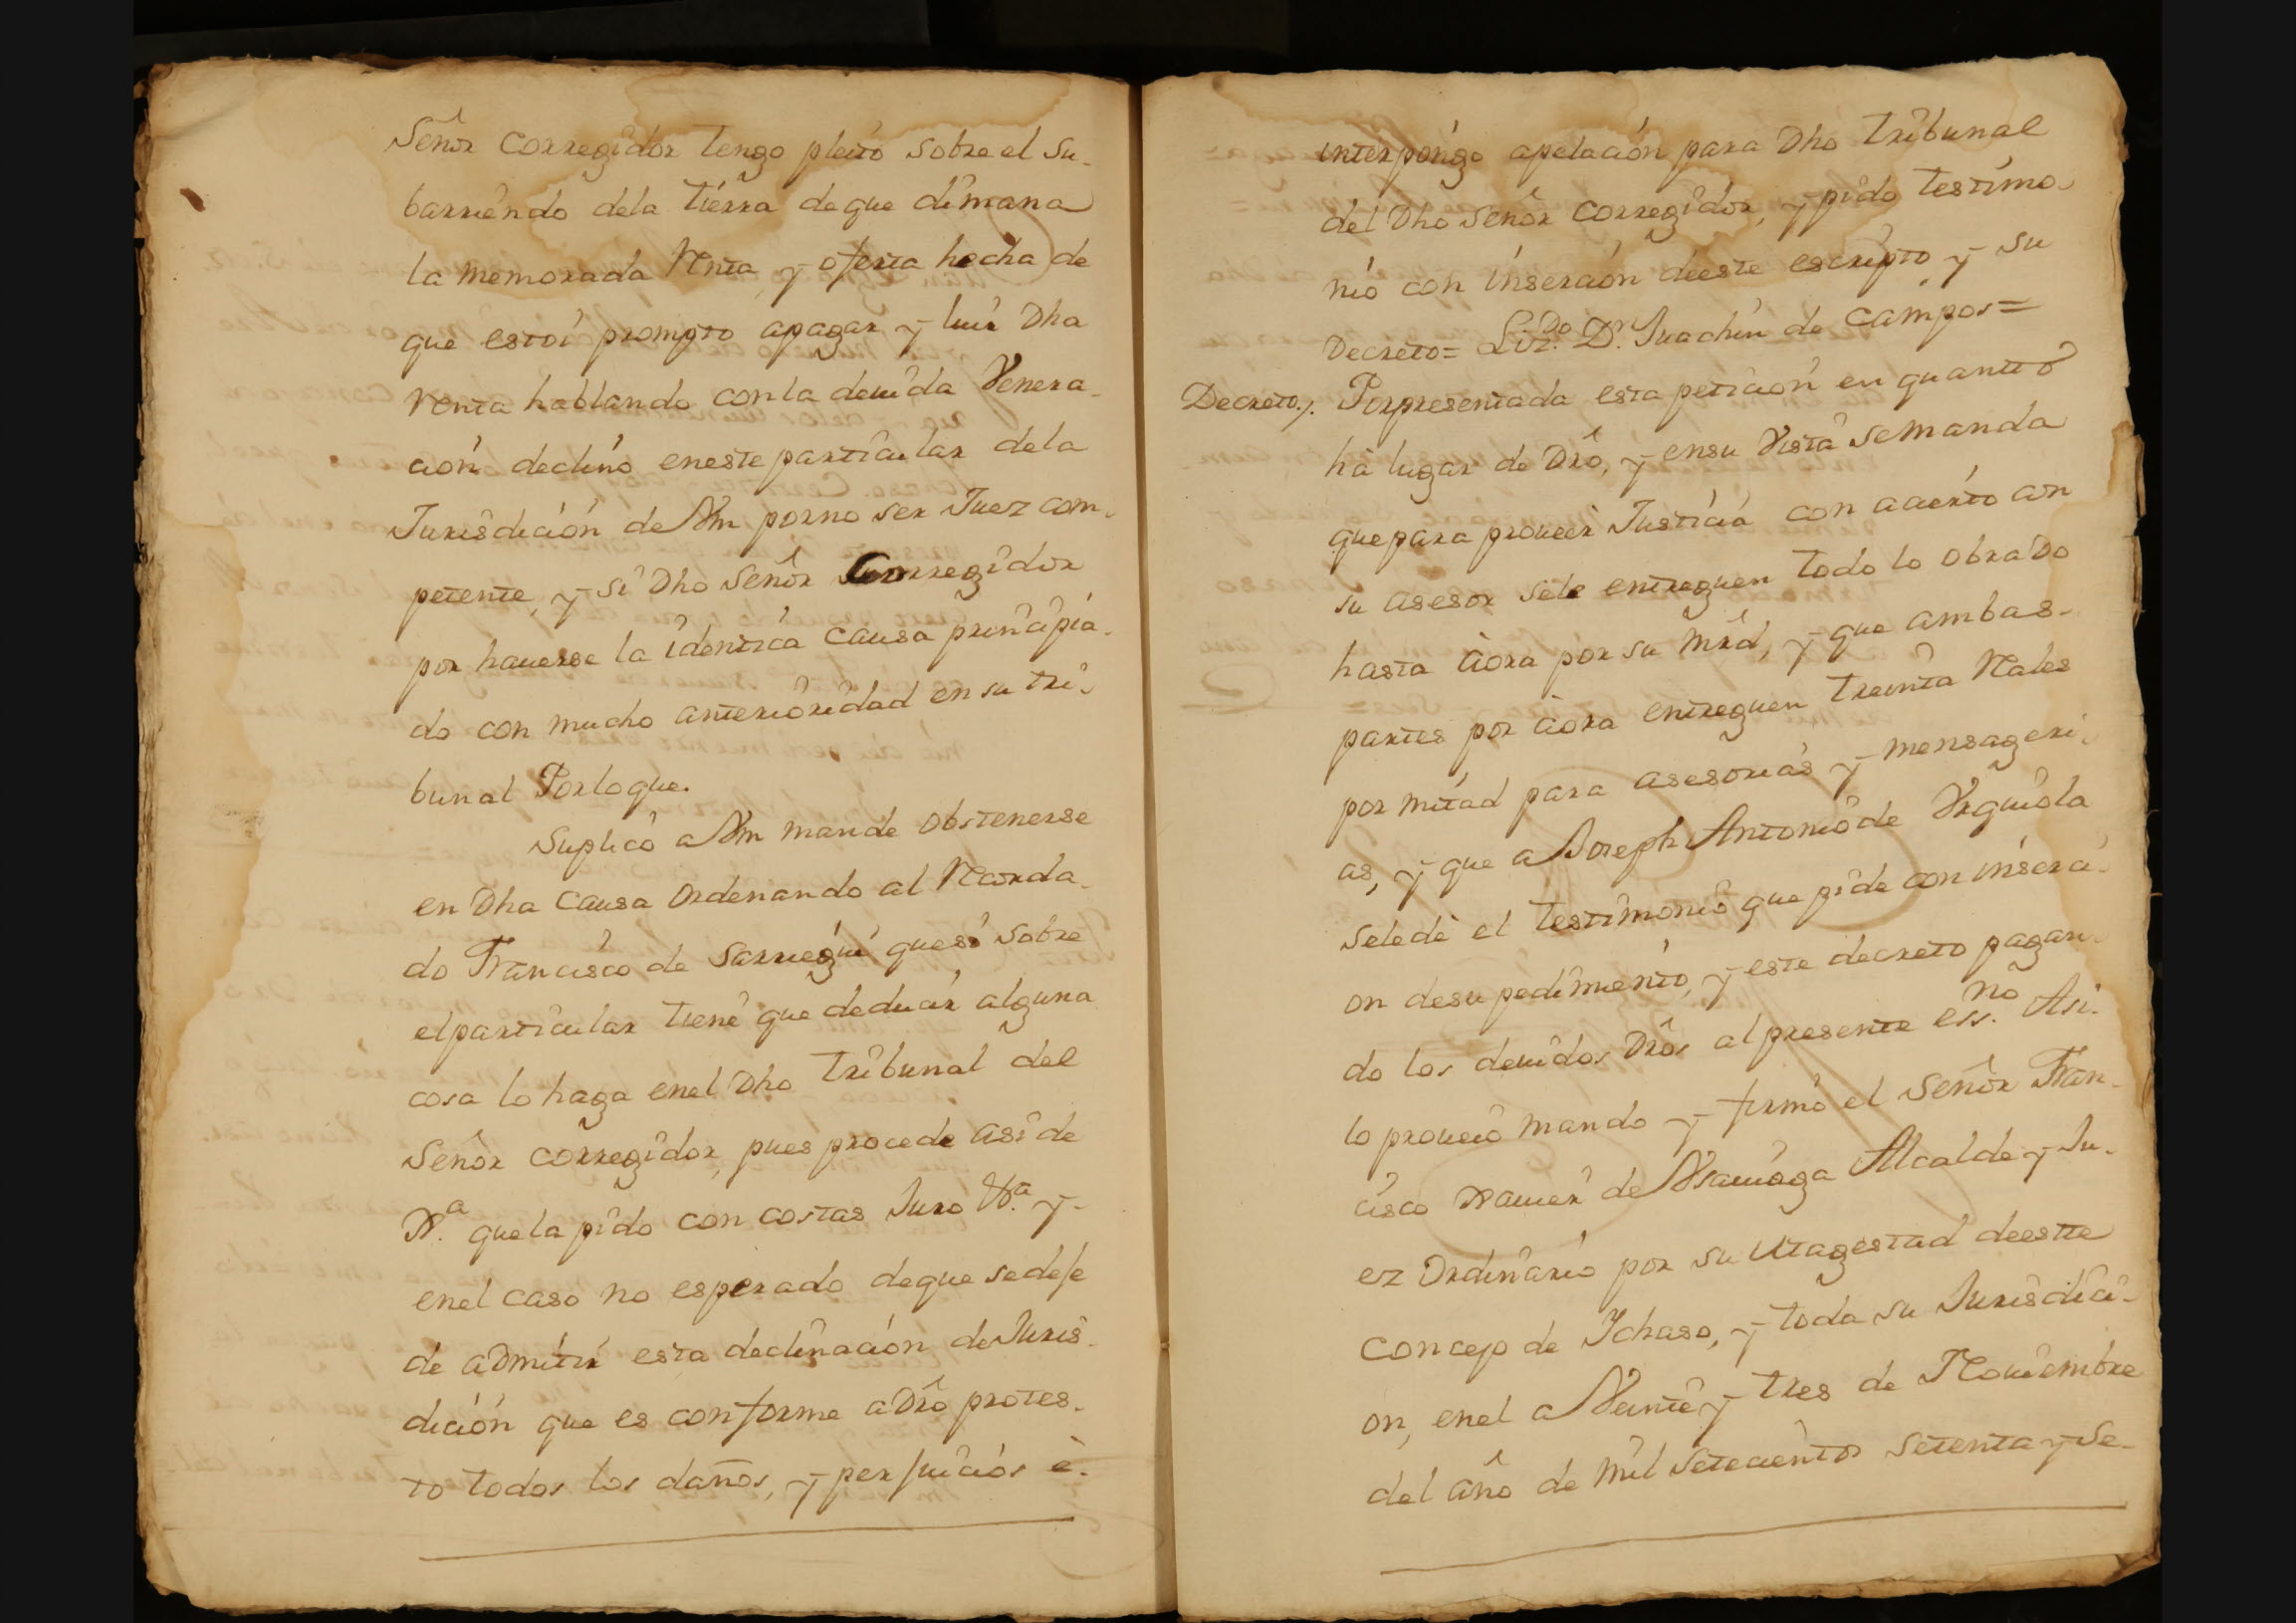 Señor Corregidor tengo pleito sobre el su-
barriendo dela tierra de que dimana
la memorada Renta, y oferta hecha de
que estoi prompto apagar y luir Dha
Renta hablando conla deuida Venera-
ción declino eneste particular dela
Jurisdición de Vm porno ser Juez com-
petente, y si Dho Señor Corregidor
por hauerse la identica causa principia-
do con mucho anterioridad en su tri-
bunal Porloque.
Suplico a Vm mande obstenerse
en Dha Causa ordenando al Reconda-
do Francisco de Sarriegui que si sobre
elparticular tiene que deducir alguna
cosa lo haga enel Dho tribunal del
Señor Corregidor, pues procede asi de
Jxa. que la pido con costas Juro Va. y-
enel caso no esperado deque sedeje
de admitir esta declinación de Juris-
dición que es conforme a Dro protes-
to todos los daños, y perjuicios è-
interpóngo apelación para Dho tribunal
del Dho Señor Corregidor, y pido testimo-
nio con inserción deeste escripto y su
Decreto= Lizdo. Dn. Juachin de Campos=
Decreto./. Porpresentada esta petición en quantto
hà lugar de Dro, y ensu Vista se manda
que para proueer Justicia con acierto con
su asesor sele entreguen todo lo obrado
hasta aora por su mrd, y que ambas-
partes por aora entreguen treinta Reales
por mitad para asesorias y mensageri-
as, y que a Joseph Antonio de Vrquiola
seledè el testimonio que pide con inserci-
on desu pedimiento, y este decreto pagan-
do los deuidos Dros al presente essno. Asi-
lo proueió mando y firmó el Señor Fran-
cisco Xauier de Vsauiaga Alcalde y Ju-
ez Ordinario por su Magestad deestte
Concejo de Ichaso, y toda su Jurisdici-
on, enel a Veinte y tres de Nouiembre
del año de mil setecientos setenta y se-